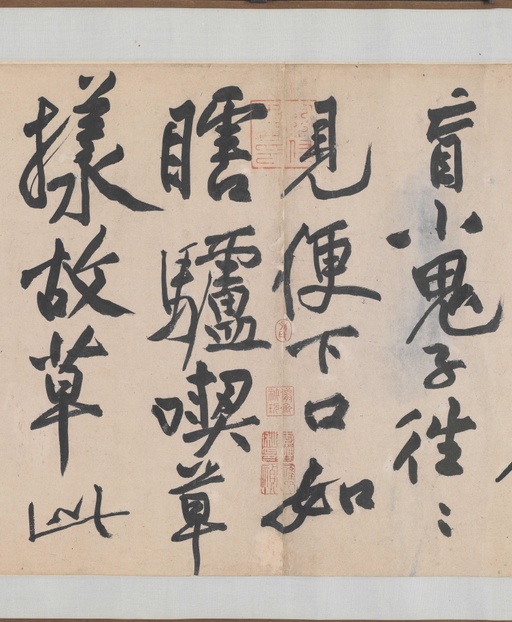 盲小鬼子往〻
見便下口如
瞎驢喫草
樣故草此